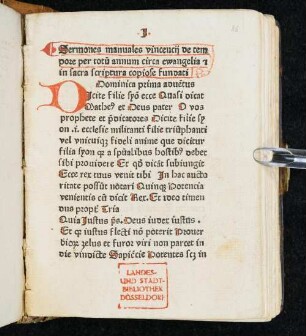 .I.
Sermones manuales vincencij de tem
pore per totũ annum circa ewangelia ⁊
in sacra scriptura copiose fundati
Dominica prima aduẽtus
Dicite filie syõ ecce Quasi dicat
Mathe⁹ et Deus pater O vos
prophete et p̃dicatores Dicite filie sy
on .i. ecclesie militanti filie triũphanti
vel vnicuiq̃ fideli anime que dicitur
filia syon q̃ a sp̃ualibus hostib⁹ debet
sibi prouidere Et q̃ dicãt subiungit
Ecce rex tuus venit tibi In hac aucto
ritate possũt notari Quinq̃ Potencia
venientis cũ dicit Rex. Et ideo timen
dus propt̃ Tria
Quia Justus p̃s. Deus iudex iustus.
Et q̃ iustus flecti nõ poterit Prouer
bioꝝ zelus et furor viri non parcet in
die vindicte Sapiẽcie Potentes
LANDES-
UND STADT-
BIBLIOTHEK
DÜSSELDORF